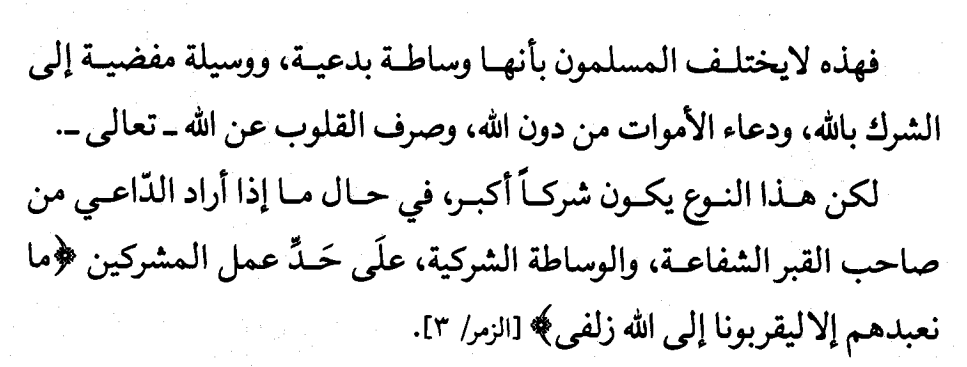 فهذه لايختلف المسلمون بأنها وساطة بدعية، ووسيلة مفضية إلى
الشرك بالله، ودعاء الأموات من دون الله، وصرف القلوب عن الله ـ تعالى ـ.
لكن هذا النوع يكون شركاً أكبر، في حال ما إذا أراد الدّاعي من
صاحب القبر الشفاعة، والوساطة الشركية، علَى حَدِّ عمل المشركين ﴿ما
نعبدهم إلا ليقربونا إلى الله زلفى﴾ [الزمر/ ٣].